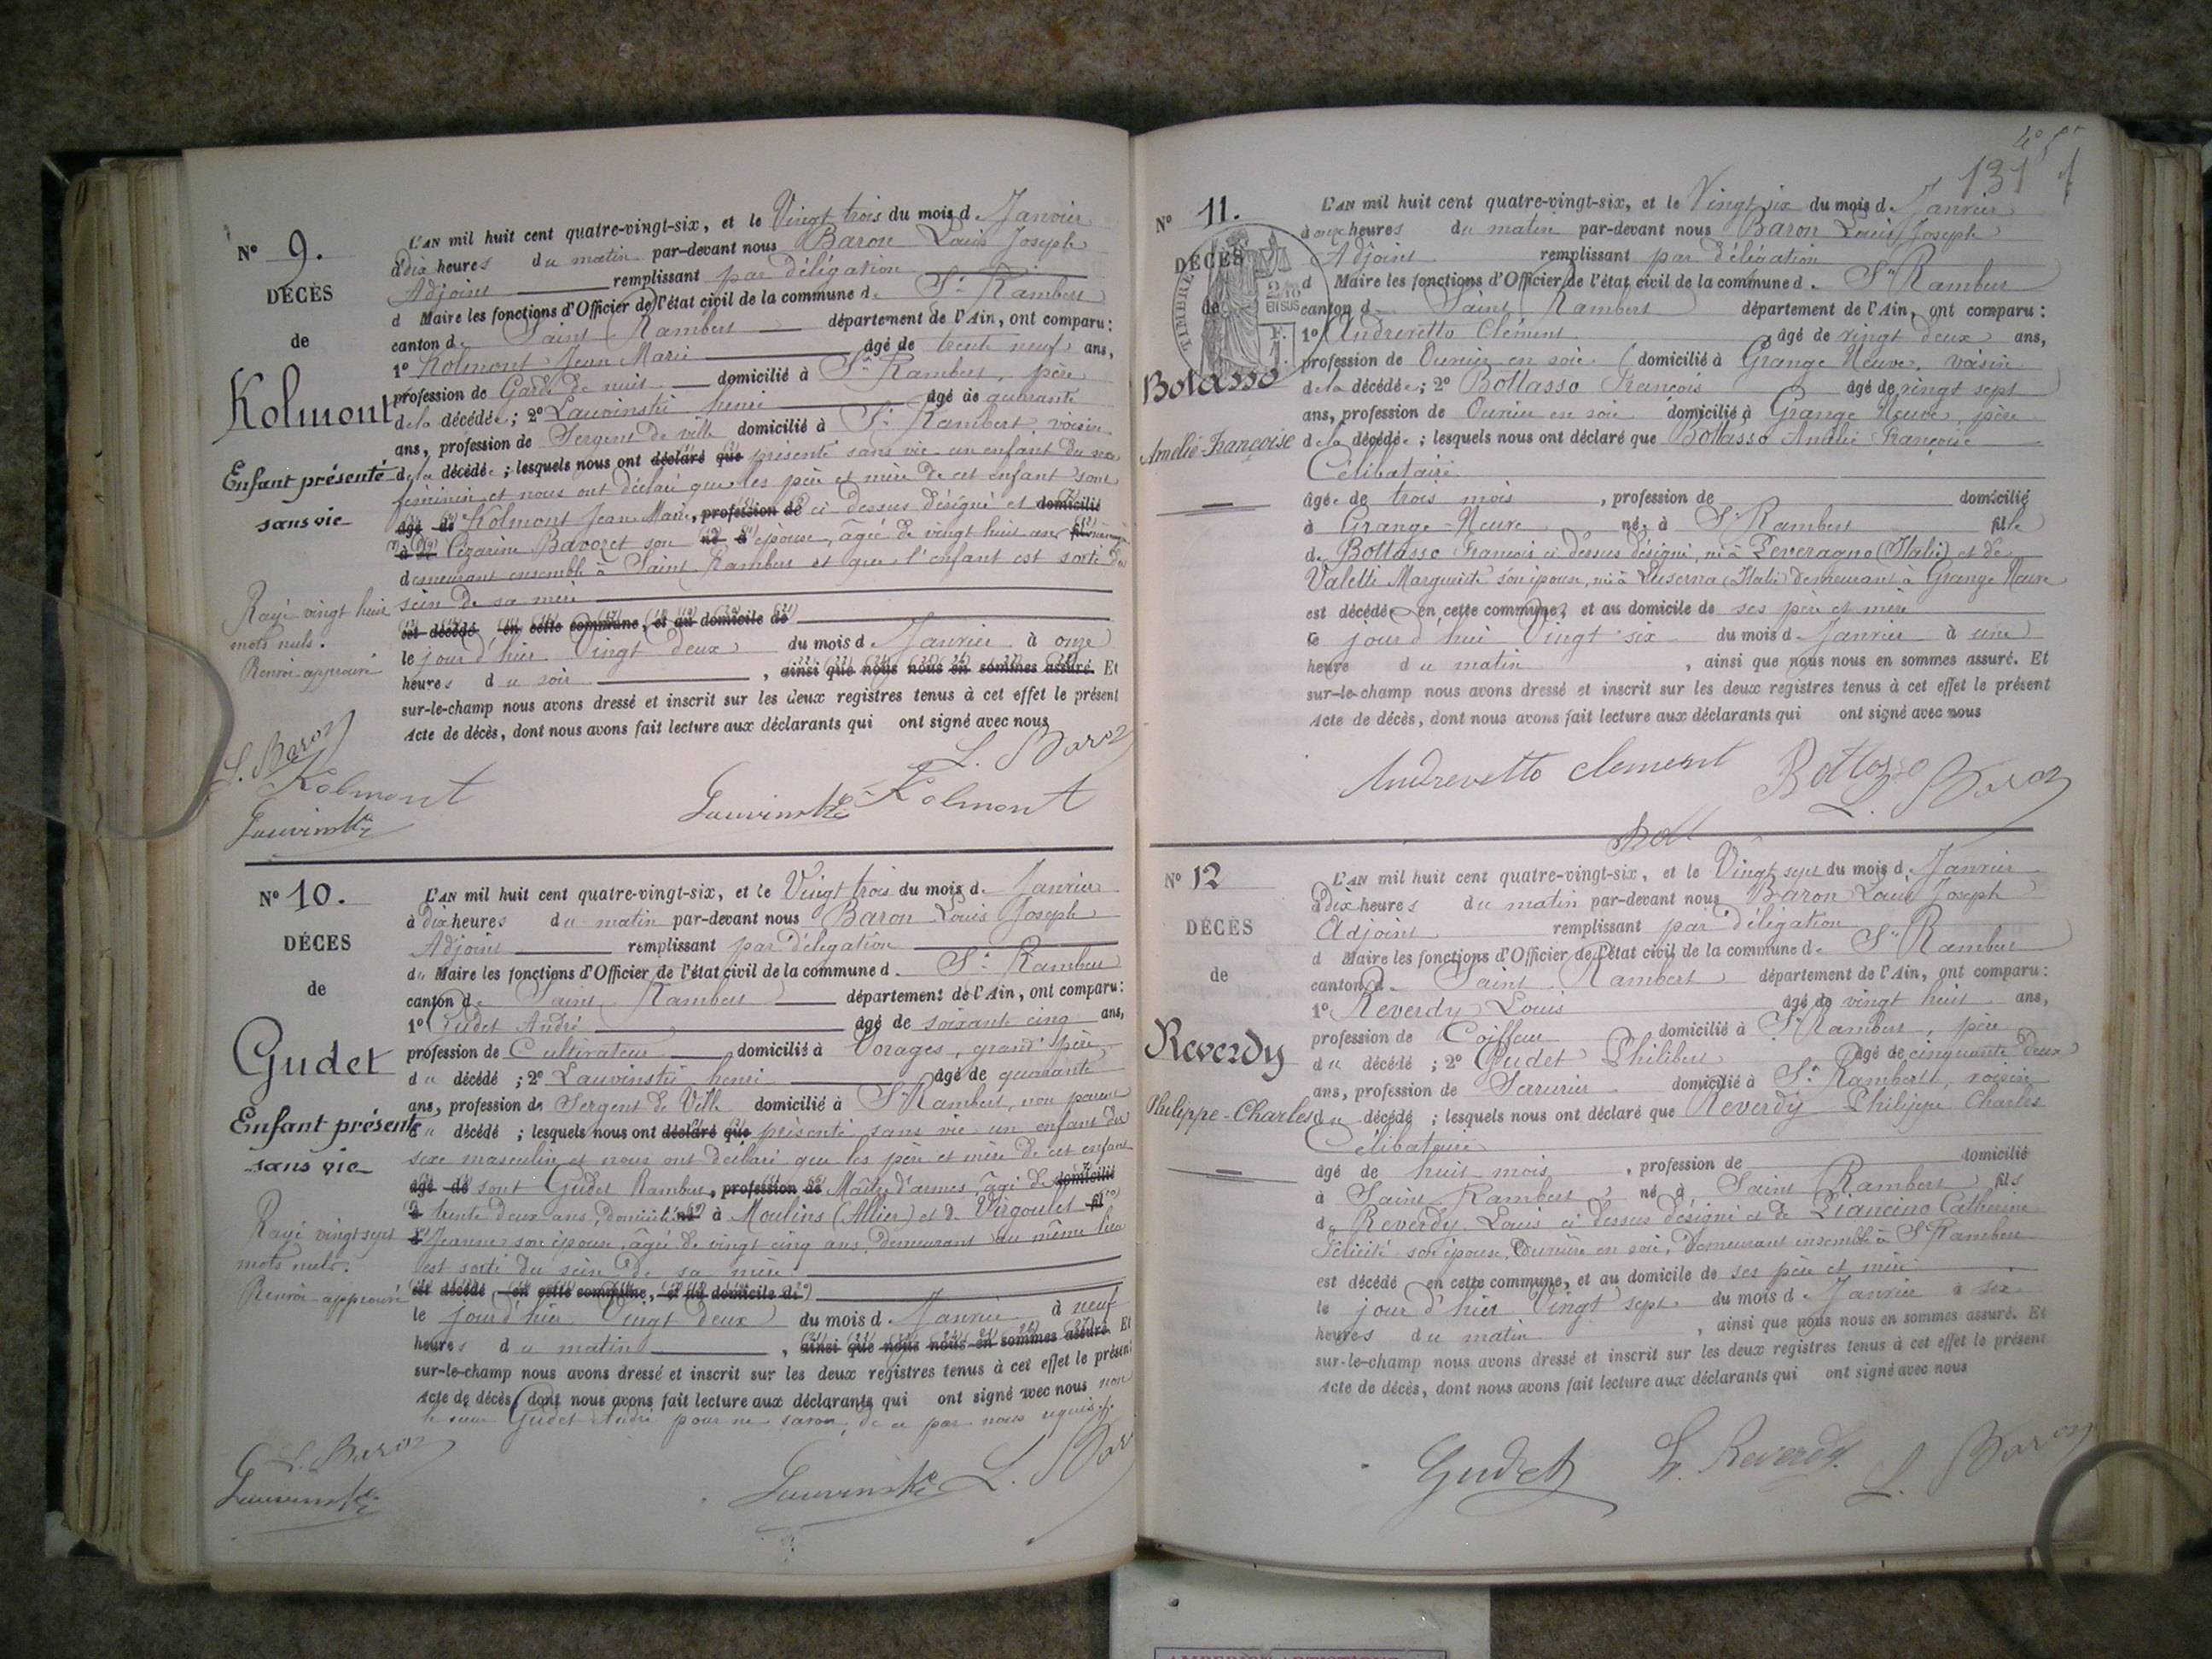 N° 9.
DÉCÈS
de
Kolmont
Enfant présenté
sans vie
Rayé vingt huit
mots nuls.
Renvoi approuvé
L'AN mil huit cent quatre-vingt-six, et le Vingt trois du mois d. Janvier
à dix heures du matin par-devant nous Baron Louis Joseph
Adjoint remplissant par délégation
d Maire les fonctions d'Officier de l'état civil de la commune d. St Rambert
canton d. Saint Rambert département de l'Ain, ont comparu:
1° Kolmont Jean Marie âgé de trente neuf ans,
profession de Garde de nuit domicilié à St Rambert, père
de la décédée; 2° Lauvinské henri âgé de quarante
ans, profession de Sergent de ville domicilié à St Rambert voisin
de la décédée; lesquels nous ont déclaré que présenté sans vie un enfant du sexe
féminin et nous ont déclaré que les père et mère de cet enfant sont
âgé de Kolmont Jean Marie, profession de ci dessus désigné et domicilié
à Cézarine Bavozet son né à épouse, âgée de vingt huit ans
demeurant ensemble à Saint Rambert et que l'enfant est sorti du
sein de sa mère
est décédé en cette commune, et au domicile de
le jour d'hier Vingt deux du mois d. Janvier à onze
heures du soir, ainsi que nous nous en sommes assuré. Et
sur-le-champ nous avons dressé et inscrit sur les deux registres tenus à cet effet le présent
Acte de décès, dont nous avons fait lecture aux déclarants qui ont signé avec nous
L. Baron
Kolmont
Lauvinské
L. Baron
Lauvinské Kolmont
N° 10.
DÉCES
de
Gudet
Enfant présenté
sans vie
Rayé vingt sept
mots nuls.
Renvoi approuvé
L'AN mil huit cent quatre-vingt-six, et le Vingt trois du mois d. Janvier
à dix heures du matin par-devant nous Baron Louis Joseph
Adjoint remplissant par délégation
du Maire les fonctions d'Officier de l'état civil de la commune d. St Rambert
canton d. Saint Rambert département de l'Ain, ont comparu:
1° Gudet André âgé de soixante cinq ans,
profession de Cultivateur domicilié à Vorages, grand père
du décédé; 2° Lauvinské henri âgé de quarante
ans, profession de Sergent de Ville domicilié à St Rambert, non parent
du décédé; lesquels nous ont déclaré que présenté sans vie un enfant du
sexe masculin et nous ont déclaré que les père et mère de cet enfant
âgé de sont Gudet Rambert, profession de Maître d'armes âgé de domicilié
à trente deux ans, domicilié né à Moulins (Allier) et d. Virgoulet fil
Jeanne son épouse, âgée de vingt cinq ans, demeurant au même lieu
est sorti du sein de sa mère
est décédé en cette commune, et au domicile de
le jour d'hier Vingt deux du mois d. Janvier à neuf
heures du matin, ainsi que nous nous en sommes assuré. Et
sur-le-champ nous avons dressé et inscrit sur les deux registres tenus à cet effet le présent
Acte de décès, dont nous avons fait lecture aux déclarants qui ont signé avec nous non
le sieur Gudet André pour ne savoir, de ce par nous requis.
L. Baron
Lauvinské
Lauvinské L. Baron
131
N° 11.
DÉCÈS
de
TIMBRE
2/10
EN SUS
Botasso
Amélie Françoise
L'AN mil huit cent quatre-vingt-six, et le Vingt six du mois d. Janvier
à onze heures du matin par-devant nous Baron Louis Joseph
Adjoint remplissant par délégation
d Maire les fonctions d'Officier de l'état civil de la commune d. St Rambert
canton d. Saint Rambert département de l'Ain, ont comparu:
1° Andrevetto Clément âgé de vingt deux ans,
profession de Ouvrier en soie domicilié à Grange Neuve, voisin
de la décédée; 2° Bottasso François âgé de vingt sept
ans, profession de Ouvrier en soie domicilié à Grange Neuve père
de la décédée; lesquels nous ont déclaré que Bottasso Amélie Françoise
Célibataire
âgée de trois mois, profession de domicilié
à Grange-Neuve née à St Rambert fille
de Bottasso François ci dessus désigné, né à Peveragno (Italie) et de
Valetti Marguerite son épouse, née à Luserna (Italie) demeurant à Grange Neuve
est décédée en cette commune, et au domicile de ses père et mère
le jour d'hui Vingt six du mois d. Janvier à une
heure du matin, ainsi que nous nous en sommes assuré. Et
sur-le-champ nous avons dressé et inscrit sur les deux registres tenus à cet effet le présent
Acte de décès, dont nous avons fait lecture aux déclarants qui ont signé avec nous
Andrevetto clement Bottasso
L. Baron
N° 12
DÉCÈS
de
Reverdy
Philippe-Charles
L'AN mil huit cent quatre-vingt-six, et le Vingt sept du mois d. Janvier
à dix heures du matin par-devant nous Baron Louis Joseph
Adjoint remplissant par délégation
d Maire les fonctions d'Officier de l'état civil de la commune d. St Rambert
canton d. Saint Rambert département de l'Ain, ont comparu:
1° Reverdy Louis âgé de vingt huit ans,
profession de Coiffeur domicilié à St Rambert, père
du décédé; 2° Gudet Philibert âgé de cinquante deux
ans, profession de Serrurier domicilié à St Rambert, voisin
du décédé; lesquels nous ont déclaré que Reverdy Philippe Charles
Célibataire
âgé de huit mois, profession de domicilié
à Saint Rambert né à Saint Rambert fils
de Reverdy Louis ci dessus désigné et de Piancino Catherine
Félicité son épouse, Ouvrière en soie, demeurant ensemble à St Rambert
est décédé en cette commune, et au domicile de ses père et mère
le jour d'hier Vingt sept du mois d Janvier à six
heures du matin, ainsi que nous nous en sommes assuré. Et
sur-le-champ nous avons dressé et inscrit sur les deux registres tenus à cet effet le présent
Acte de décès, dont nous avons fait lecture aux déclarants qui ont signé avec nous
Gudet L. Reverdy L. Baron